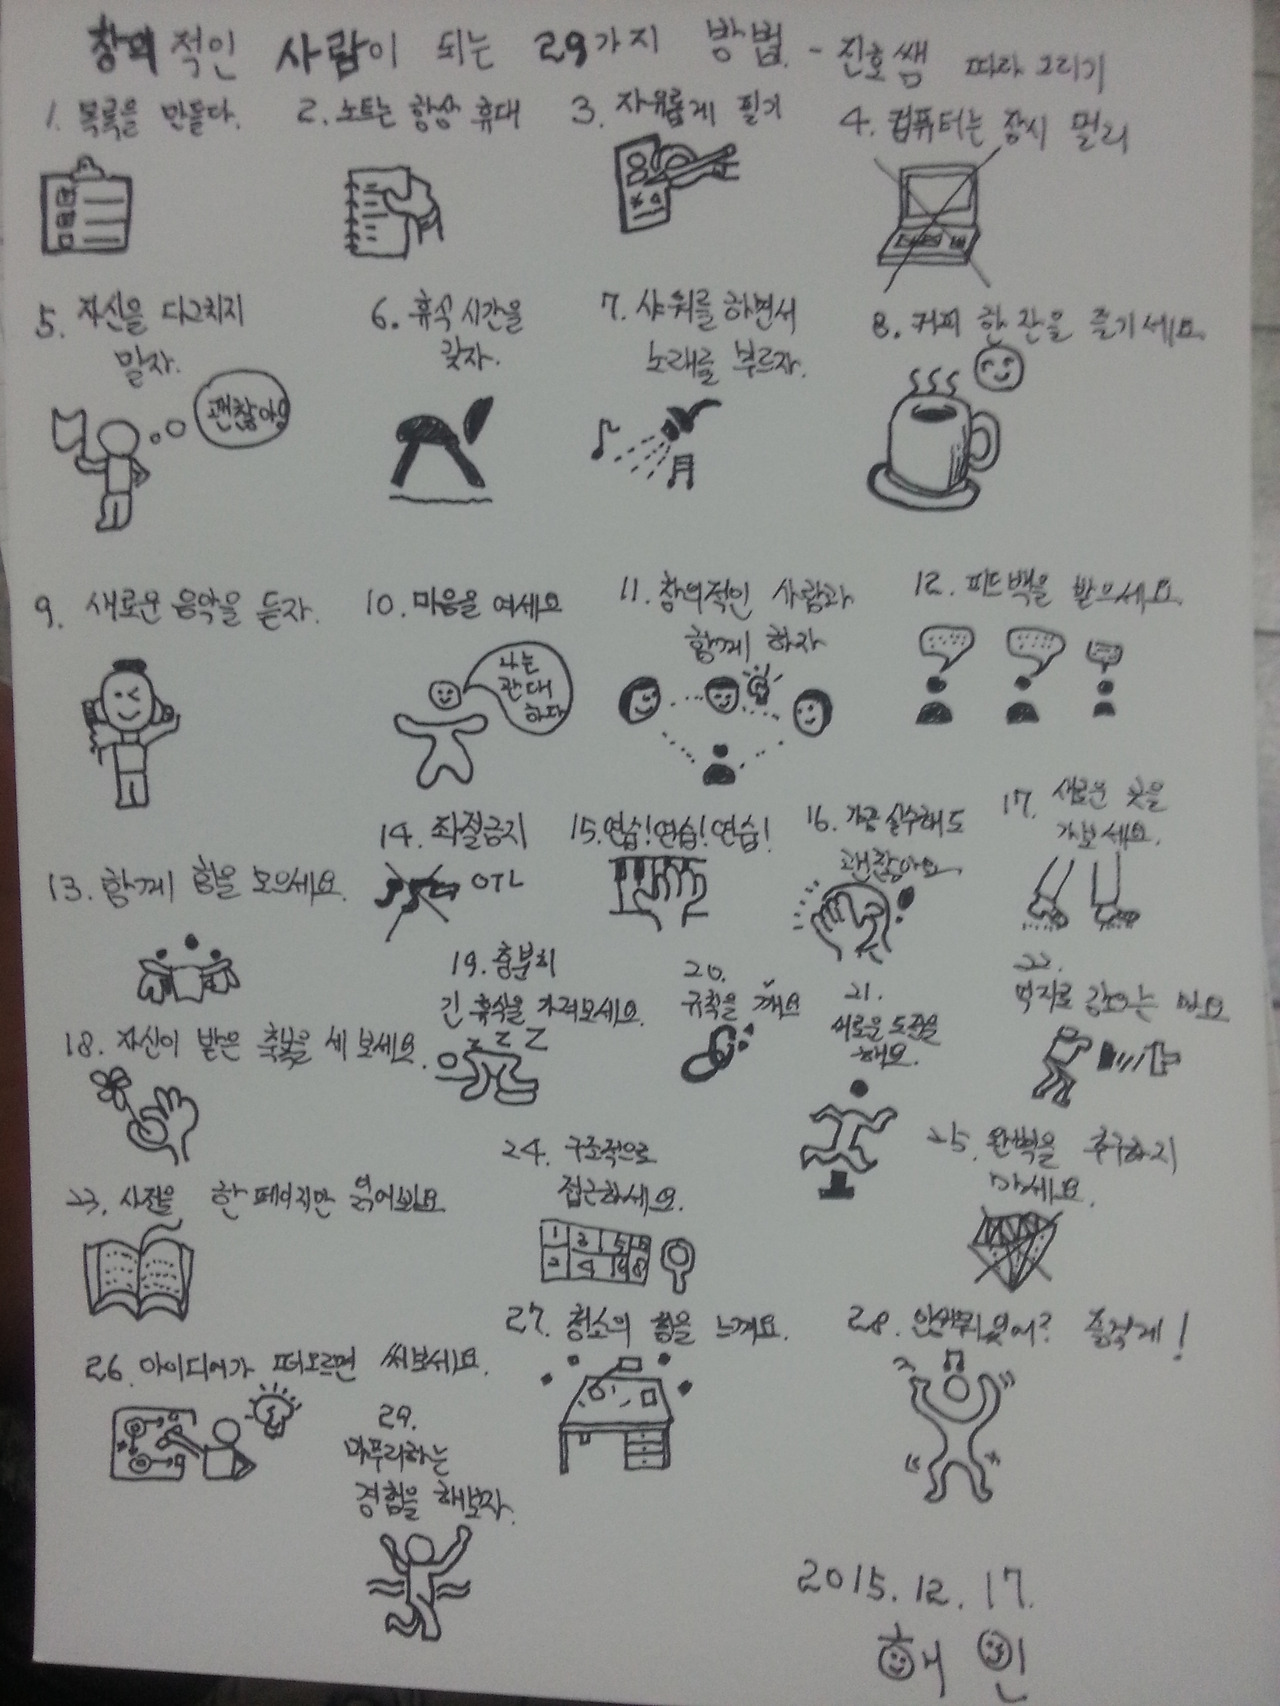 창의적인 사람이 되는 29가지 방법. - 진호쌤 따라 그리기
1. 목록을 만들다.
2. 노트는 항상 휴대
3. 자유롭게 필기
4. 컴퓨터는 잠시 멀리
5. 자신을 다그치지
말자.
괜찮아!
6. 휴식시간을
갖자.
7. 샤워를 하면서
노래를 부르자.
8. 커피 한 잔을 즐기세요.
9. 새로운 음악을 듣자.
10. 마음을 여세요
나는
관대
하다
11. 창의적인 사람과
함께 하자
12. 피드백을 받으세요.
13. 함께 힘을 모으세요.
14. 좌절금지
OTL
15. 연습! 연습! 연습!
16. 가끔 실수해도
괜찮아요.
17. 새로운 곳을
가보세요.
18. 자신이 받은 축복을 세 보세요.
19. 충분히
긴 휴식을 가져보세요.
z Z Z
20.
규칙을 깨요
21.
새로운 도전을
해요.
22.
억지로 강요는
23. 사전을 한 페이지만 읽어봐요
24. 구조적으로
접근하세요.
1 3 5
2 4
25. 완벽을 추구하지
마세요.
26. 아이디어가 떠오르면 써보세요.
27. 청소의 힘을 느껴요.
28. 즐겁게!
29.
마무리하는
경험을 해보자.
2015. 12. 17.
해인